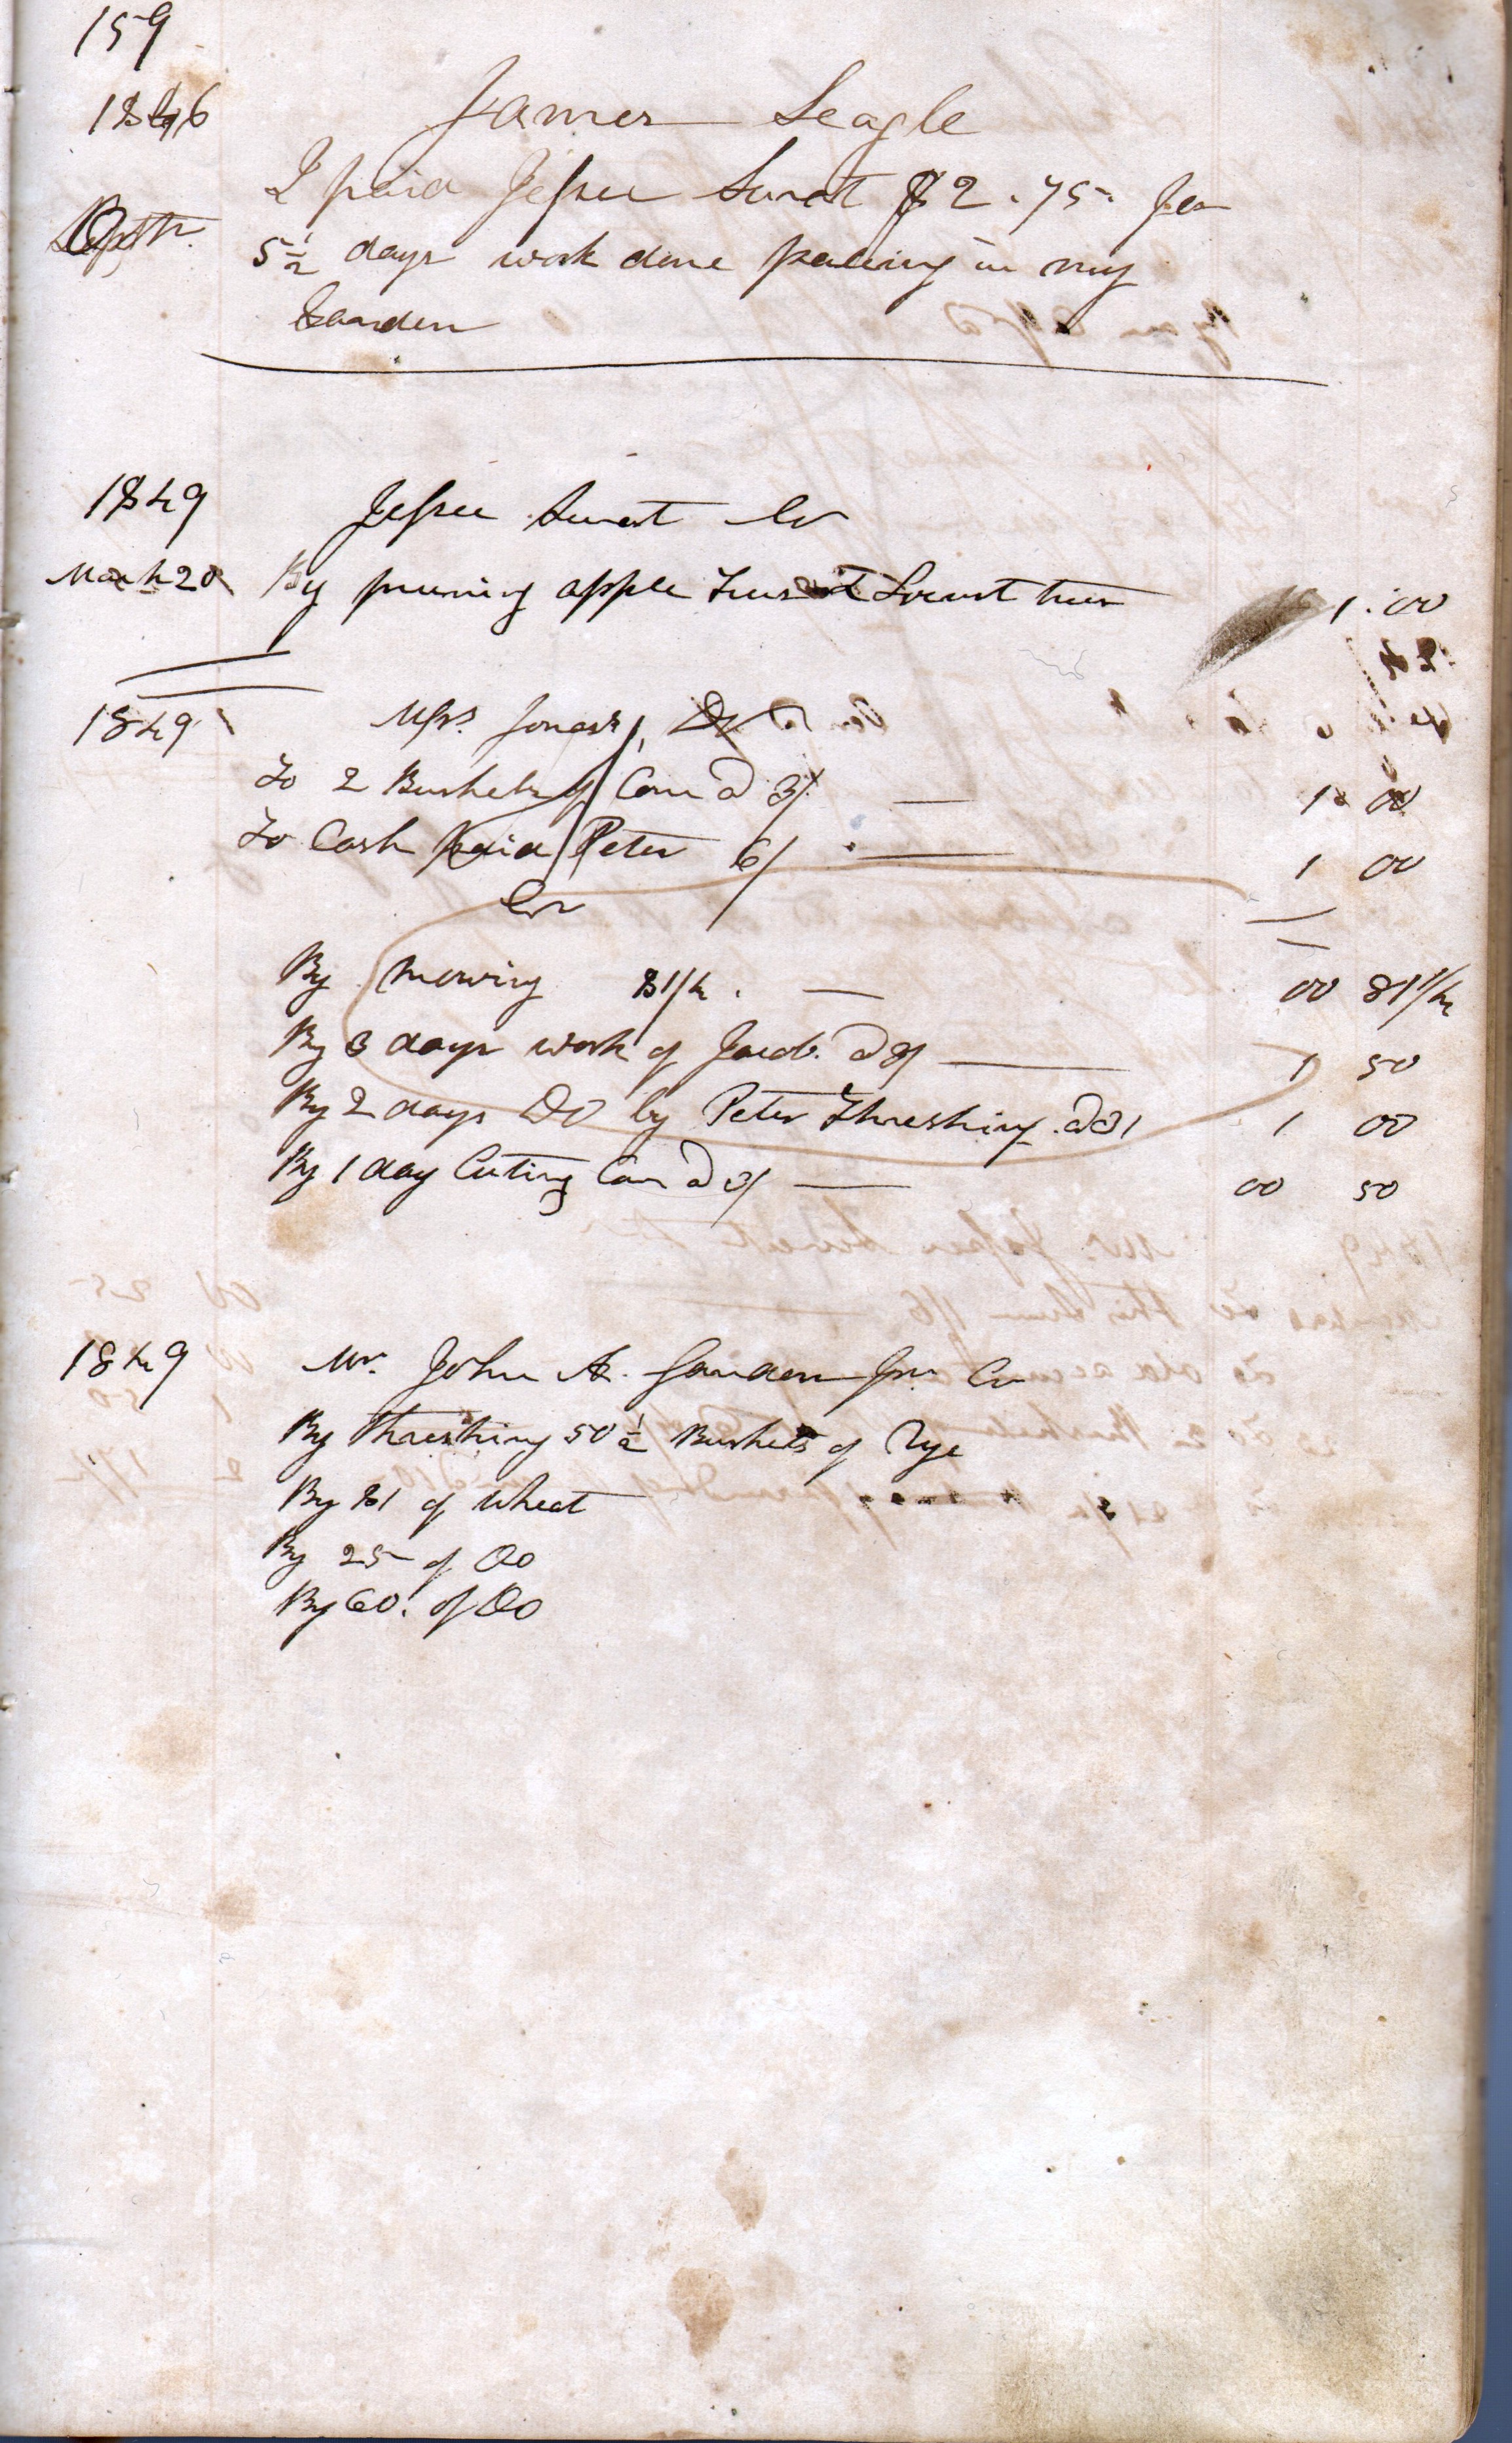 159
1846
James Seagle
I paid Jessee Surat $2.75 for
5 1/2 days work done paling in my
Garden
1849
Jessee Surat Cr
March 20 By pruning apple Trees & Locust trees 1.00
1849
Dr
To 2 Bushels of Corn @ 3/ — 1 00
To Cash paid Peter 6/ — 1 00
Cr
By mowing 81/4 . — 00 81 1/4
By 3 days work of Jacob @ 3/ — 1 50
By 2 days Do by Peter Threshing @ 3/ 1 00
By 1 day Cuting Corn @ 3/ — 00 50
1849
Mr. John A. Jnr Cr
By Thrashing 50 1/2 Bushels of Rye
By 81 of Wheat
By 25 of Do
By 60. of Do